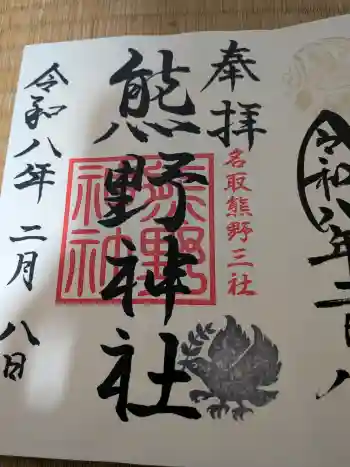 令和八年二月八
奉拝
名取熊野三社
熊野神社
熊野
神社
令和八年二月八日